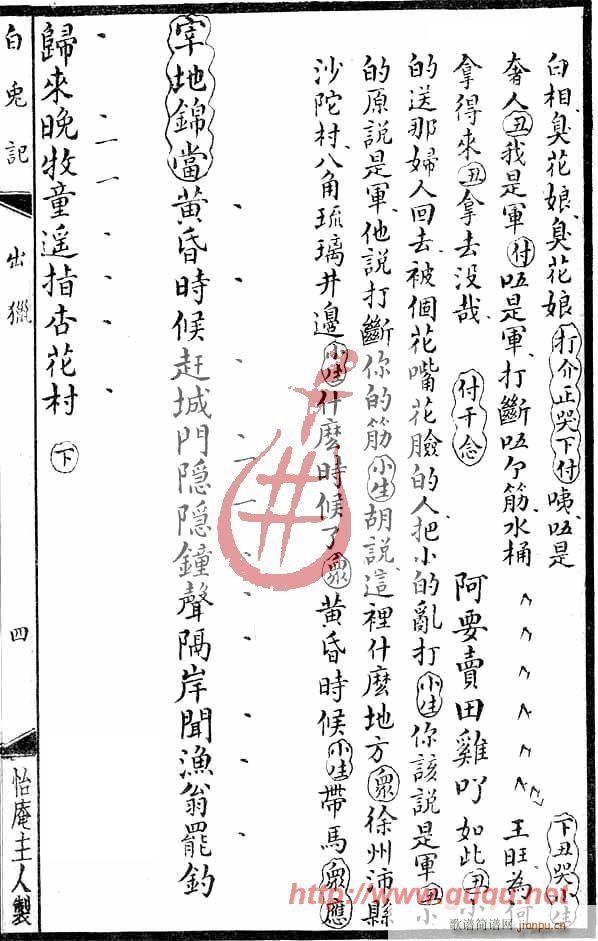 白相臭花娘臭花娘 打介正哭下付 咦㕶是 下丑哭小生
奢人 丑 我是軍 付 㕶是軍打斷㕶个筋水桶 王旺為何
拿得來 丑 拿去没哉 付干念 阿要賣田雞吖 如此 丑 小
的送那婦人回去被個花嘴花臉的人把小的亂打 小生 你該說是軍 丑 小
的原說是軍他說打斷你的筋 小生 胡說這裡什麽地方 衆 徐州沛縣
沙陀村八角琉璃井邊 小生 什麽時候了 衆 黃昏時候 小生 帶馬 衆應
宰地錦當 黃昏時候赶城門隱隱鐘聲隔岸聞漁翁罷釣
歸來晚牧童遥指杏花村 下
白兎記 出獵 四 怡庵主人製
http://www.guqu.net
歌谱简谱网
jianpu.cn